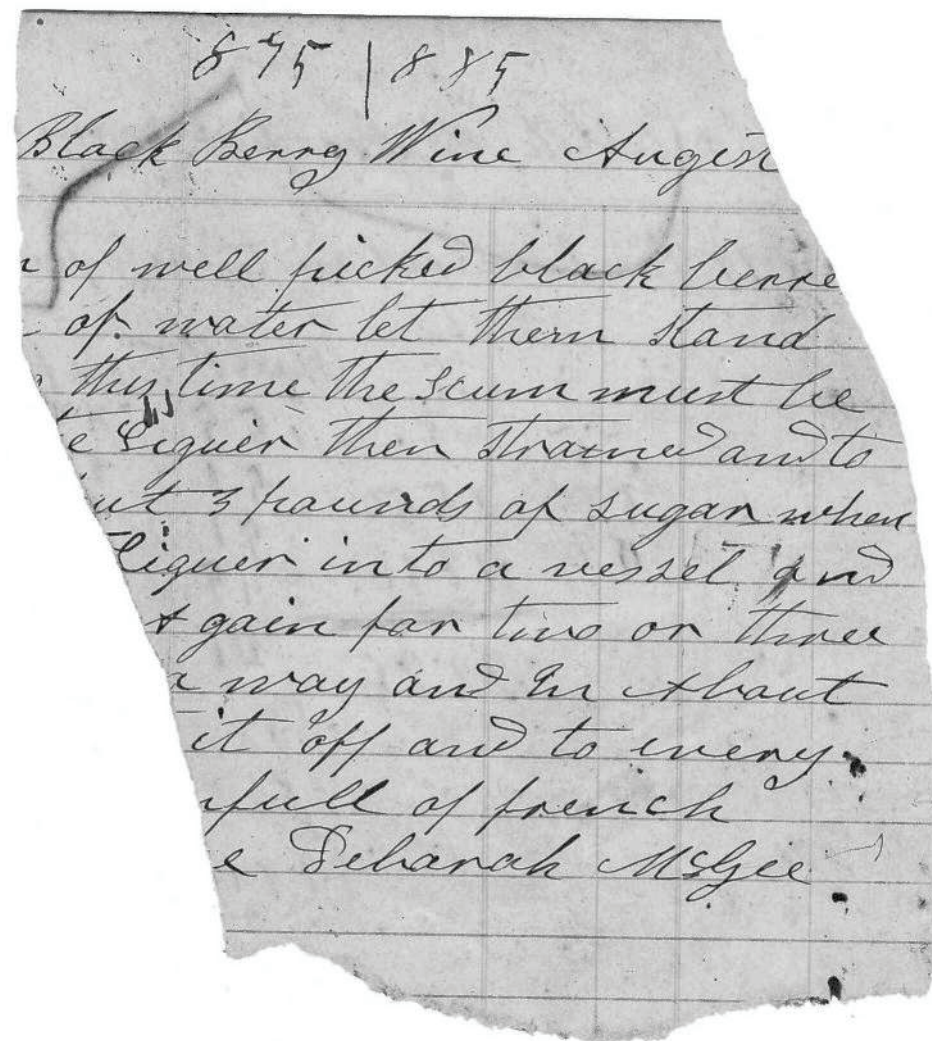 875 | 885
Black Berry Wine Augest
of well picked black berre
of water let them stand
this time the scum must be
e Liquer then strained and to
ut 3 pounds of sugar when
Liquer into a vessel and
again for two or three
a way and in about
it off and to every
full of french
e Deborah McGee